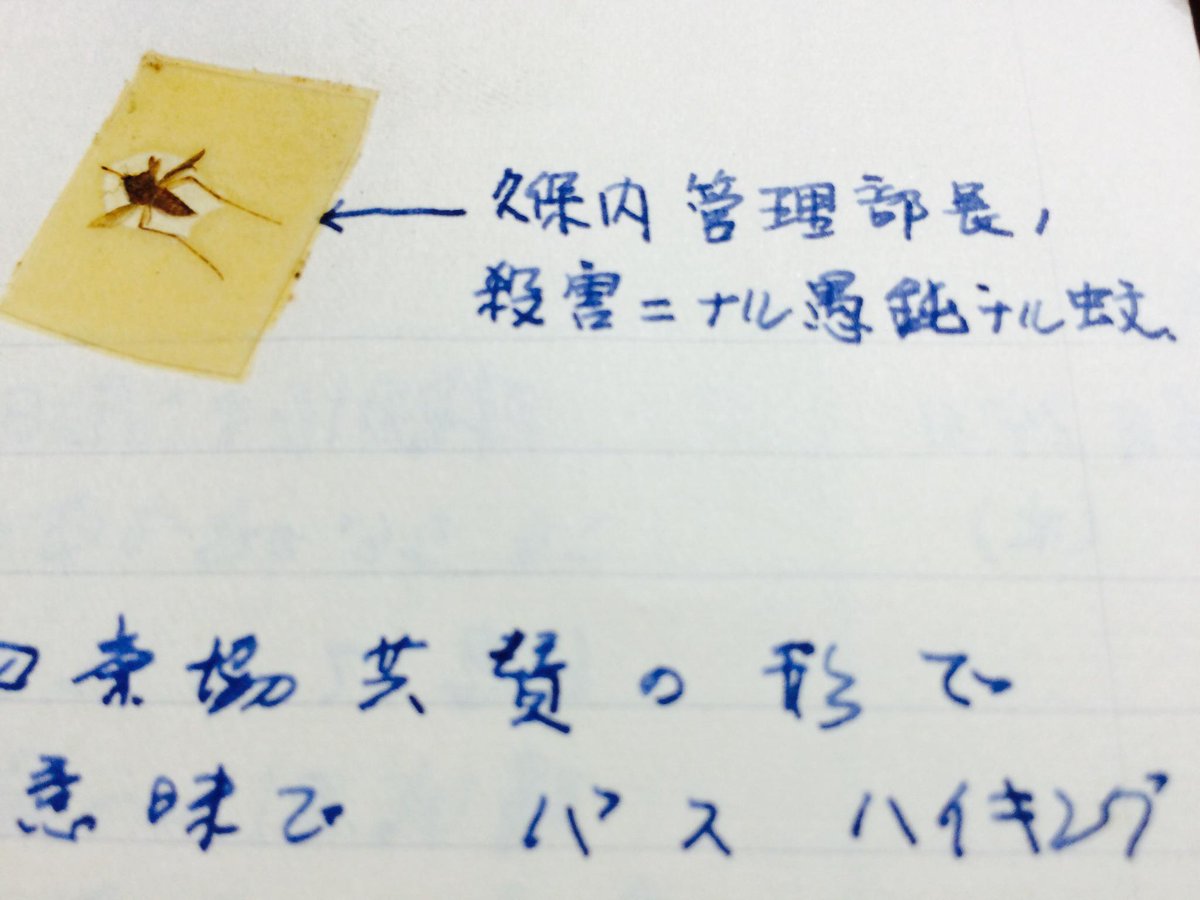 久保内 管理部長,
殺害ニナル愚鈍ナル蚊、
東場共賛の形で
意味で バス ハイキング